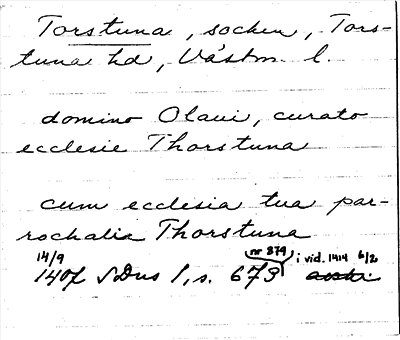 Torstuna, socken, Tors-
tuna hd, Västm. l.
domino Olaui, curato
ecclesie Thorstuna
cum ecclesia tua par-
rochalia Thorstuna
14/9 nr 879 i vid. 1414 6/20
1407 SDns 1, s. 673